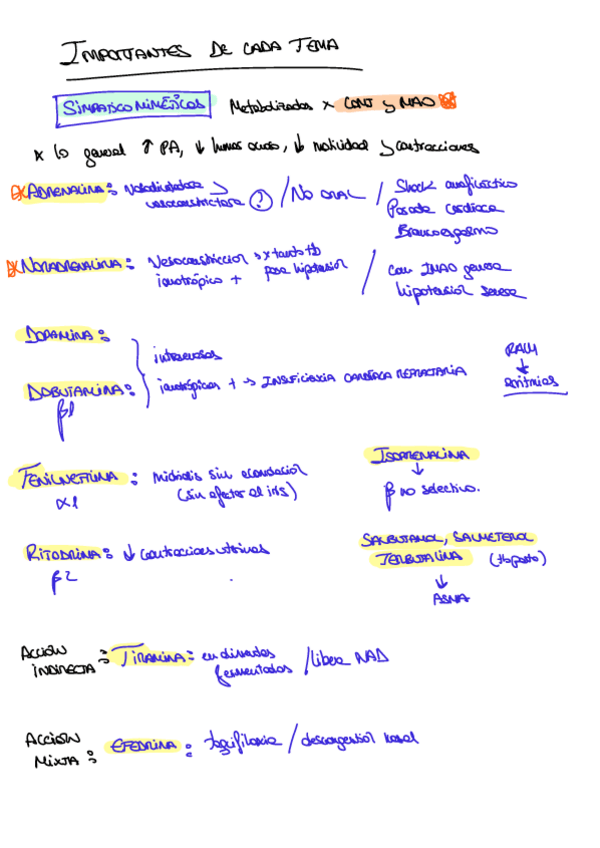 IMPORTANTES DE CADA TEMA
SIMPATICOMIMÉTICOS Metabolizados x COMT y MAO
x lo general ↑ PA, ↓ humor acuoso, ↓ motilidad y contracciones
ADRENALINA: Vasodilatadora y vasoconstrictora ? / No ORAL / Shock anafiláctico
Parada cardiaca
Broncoespasmo
NORADRENALINA: Vasoconstricción → x tanto tb para hipotensión
inotrópico + / Con IMAO genera hipotensión severa
DOPAMINA:
intravenosas
DOBUTAMINA: inotrópicas + → INSUFICIENCIA CARDÍACA REFRACTARIA
β1
RAM
↓
arritmias
FENILNEFRINA: Midriasis sin acomodación
α1 (sin afectar al iris)
ISOPRENALINA
↓
β no selectivo.
RITODRINA: ↓ contracciones uterinas
β2
SALBUTAMOL, SALMETEROL
TERBUTALINA (tb parto)
↓
ASMA
ACCIÓN
INDIRECTA: TIRAMINA: en alimentos fermentados / libera NAD
ACCIÓN
MIXTA: EFEDRINA: taquifilaxia / descongestión nasal